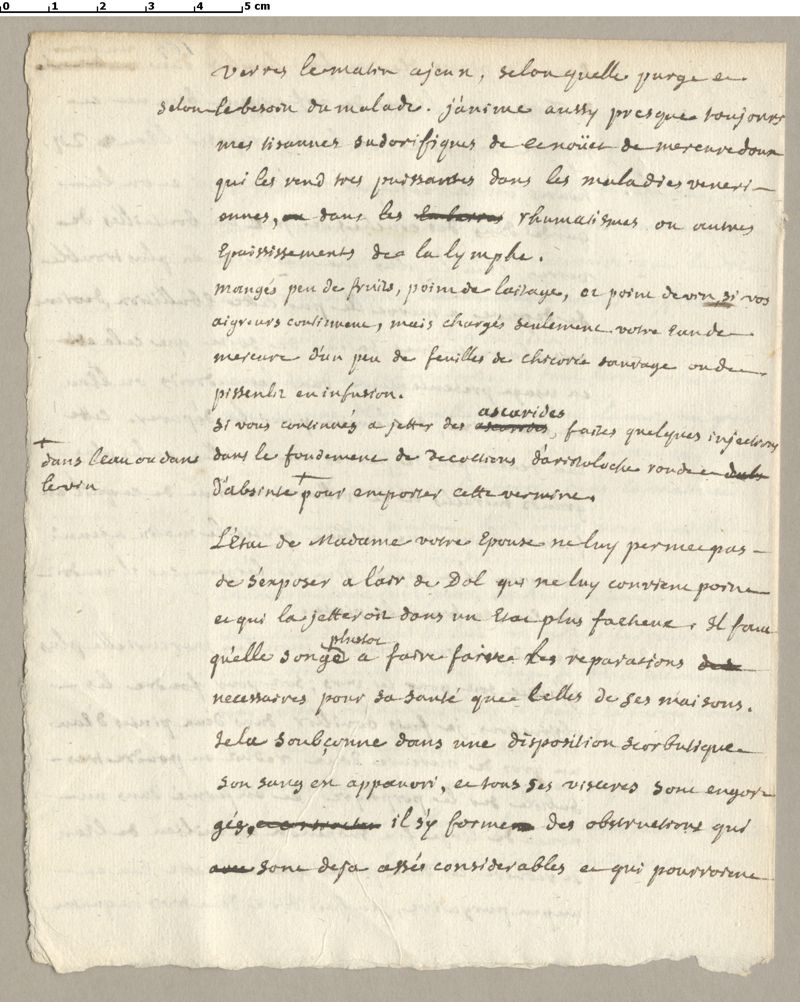 0 1 2 3 4 5 cm
verres le matin a jeun, selon quelle purge et
selon le besoin du malade. j'anime aussy presque toujours
mes tisannes sudorifiques de ce noüet de mercure doux
qui les rend tres puissantes dans les maladies veneri-
ennes, ou dans les rhumatismes ou autres
Epaississements de la lymphe.
mangés peu de fruits, point de laitage, et point de vin, si vos
aigreurs continuent, mais chargés seulement votre eau de
mercure d'un peu de feuilles de chicorée sauvage ou de
pissenlit en infusion.
si vous continués a jetter des ascarides, faites quelques injections
dans le fondement de decoctions d'aristoloche ronde et
d'absinte + pour emporter cette vermine.
+ dans l'eau ou dans
le vin
L'Etat de Madame votre Epouse ne luy permet pas
de s'exposer a l'air de Dol qui ne luy convient point
et qui la jetteroit dans un Etat plus facheux. Il faut
qu'elle songe plustot a faire faire les reparations
necessaires pour sa santé que celles de ses maisons.
Je la soubçonne dans une disposition scorbutique
son sang est appauvri, et tous ses visceres sont engor-
gés, il s'y forme des obstructions qui
sont deja assés considerables et qui pourroient